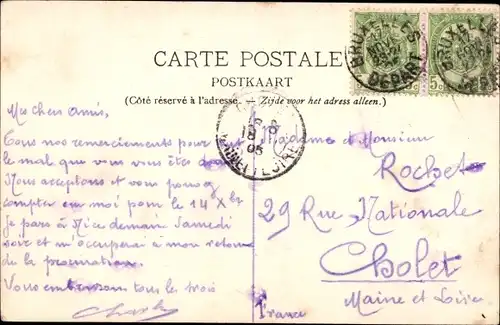 CARTE POSTALE
POSTKAART
(Côté réservé à l'adresse. - Zijde voor het adress alleen.)
BRUXELLES
DEPART
5c
Mes chers Amis,
Tous nos remerciements pour tout
le mal que vous vous êtes
Nous acceptons et vous pouvez
compter sur moi pour le 14 Xbre
Je pars à Nice demain Samedi
soir et m'occuperai à mon retour
de la procuration.
Vous embrassons tous les trois
Charles
Madame et Monsieur
Rochet
29 Rue Nationale
Cholet
Maine et Loire
France